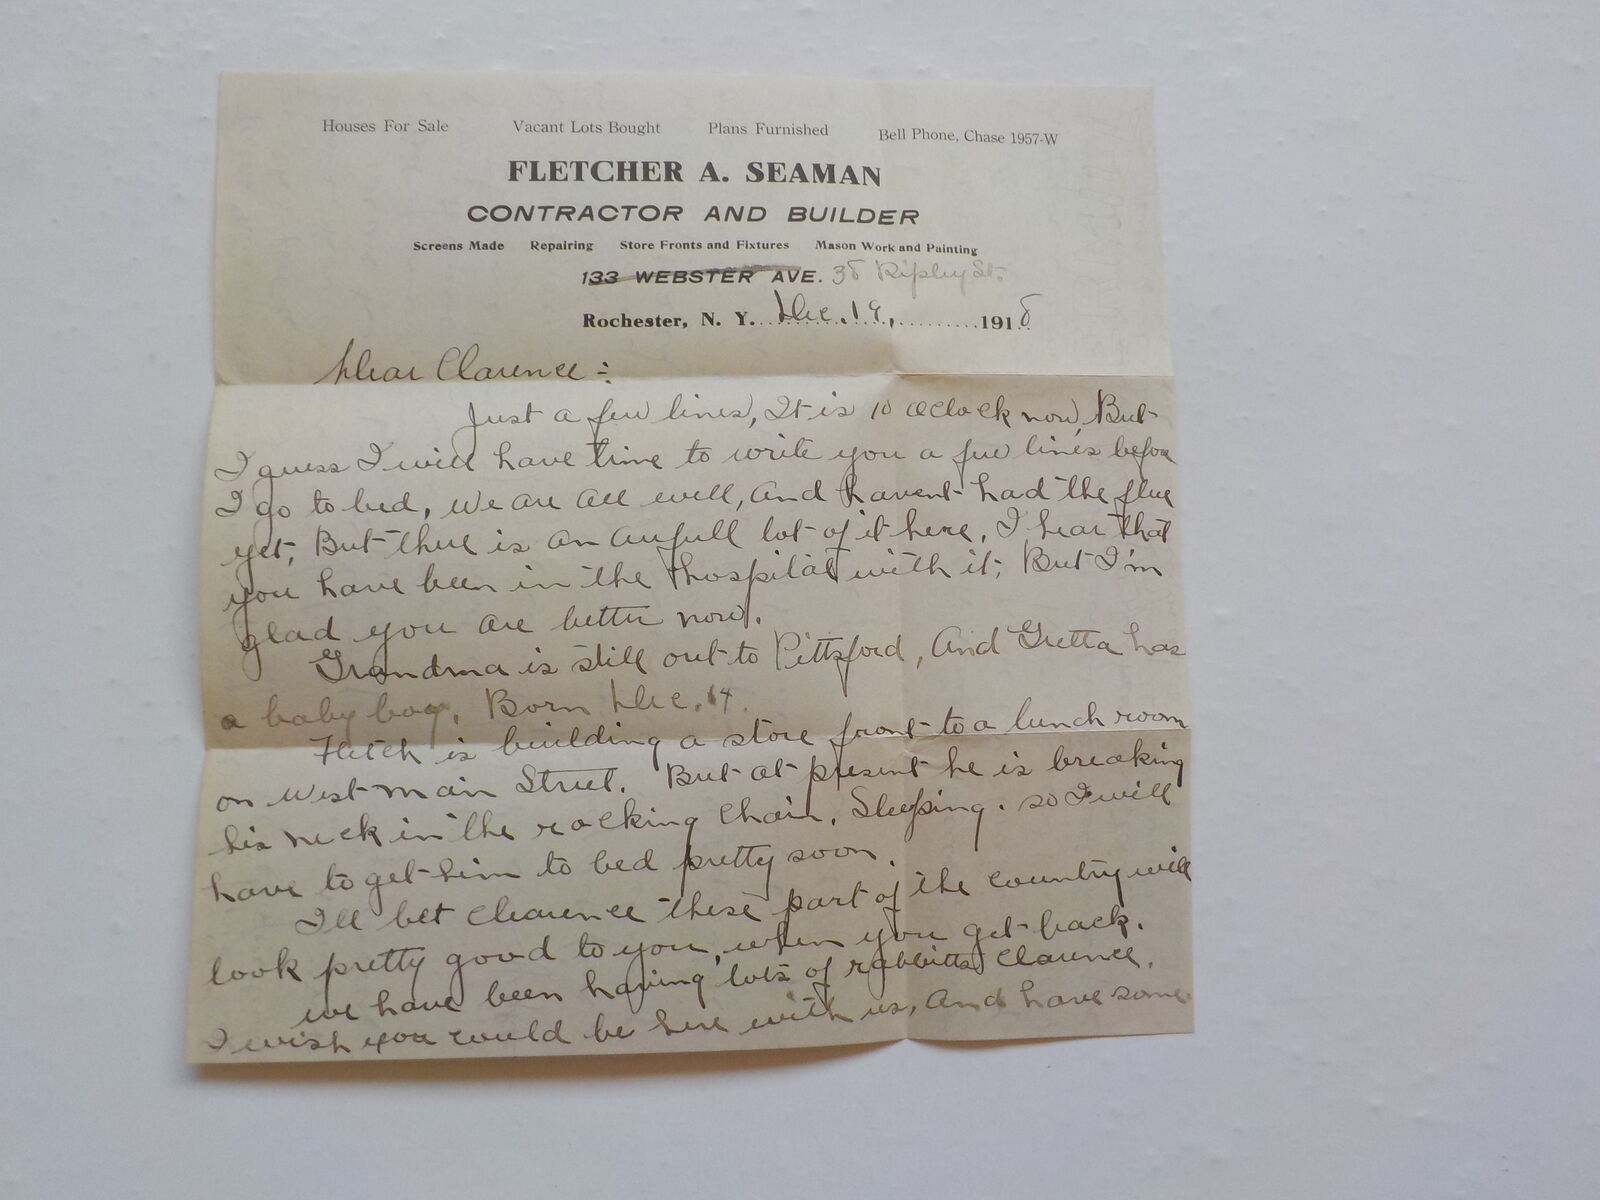 Houses For Sale Vacant Lots Bought Plans Furnished Bell Phone, Chase 1957-W
FLETCHER A. SEAMAN
CONTRACTOR AND BUILDER
Screens Made Repairing Store Fronts and Fixtures Mason Work and Painting
133 WEBSTER AVE. 38 Ripley St.
Rochester, N. Y. Dec. 19, 1918
Dear Clarence:
Just a few lines, It is 10 oclock now, But
I guess I will have time to write you a few lines before
I go to bed, We are all well, and havent had the flue
yet, But there is an aufull lot of it here, I hear that
you have been in the hospital with it, But I'm
glad you are better now.
Grandma is still out to Pittsford, And Gretta has
a baby boy, Born Dec. 14.
Fletch is building a store front to a lunch room
on West main Street. But at present he is breaking
his neck in the rocking Chair, Sleeping. so I will
have to get him to bed pretty soon.
I'll bet Clarence these part of the country will
look pretty good to you, when you get back.
we have been having lots of rabbitts Clarence.
I wish you could be here with us, And have some